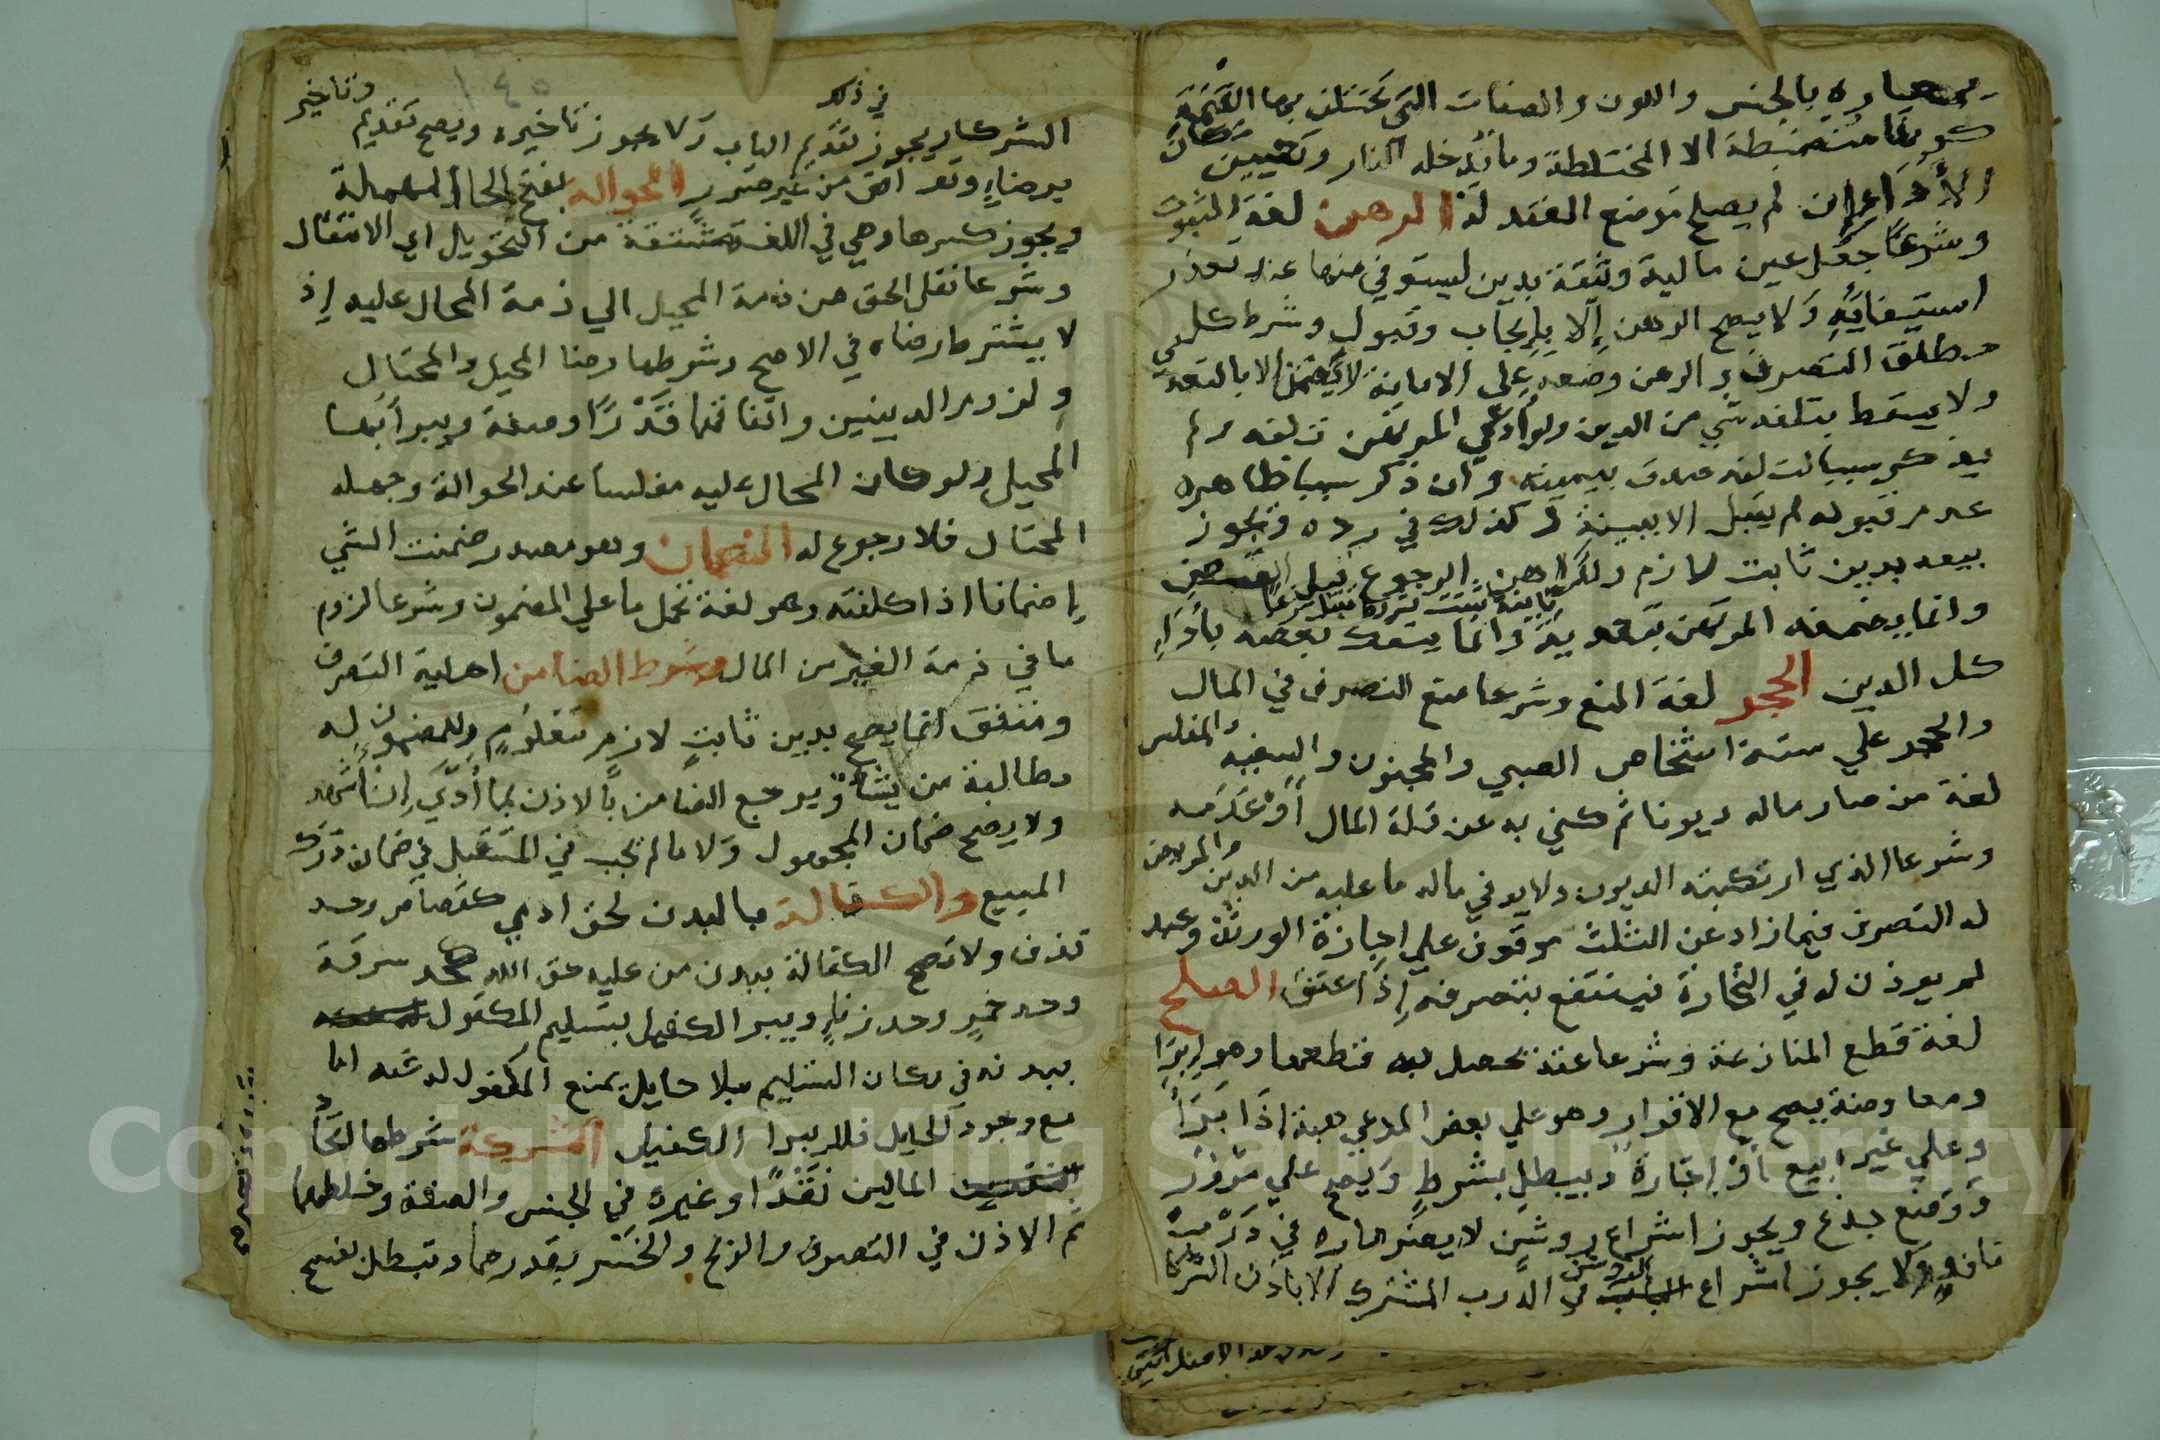 بالجنس واللون والصفات التي تختلف بها القيمة
كونها منضبطة الا المختلطة وما تدخله النار وتعيين مكان
الأداء ان لم يصلح موضع العقد له الرهن لغة الثبوت
وشرعًا جعل عين مالية وثيقة بدين ليستوفي منها عند تعذر
استيفائه ولا يصح الرهن إلا بإيجاب وقبول وشرط كل
مطلق التصرف والرهن وضعه على الامانة لا يضمن الا بالتعدي
ولا يسقط بتلفه شي من الدين ولو ادعي المرتهن تلفه ولم
يذكر سببا لتلفه صدق بيمينه وان ذكر سببا ظاهره
عدم قبوله لم يقبل الا ببينة وكذلك في رده ويجوز
بيعه بدين ثابت لازم وللراهن الرجوع قبل القبض
وانما يضمنه المرتهن بتعديه وانما ينفك بعضه بأداء
كل الدين الحجر لغة المنع وشرعا منع التصرف في المال
والحجر علي ستة اشخاص الصبي والمجنون والسفيه والمفلس
لغة من صار ماله ديونا ثم كني به عن قلة المال أو عدمه
وشرعا الذي ارتكبته الديون ولا يوفي ماله ما عليه من الدين والمريض
له التصرف فيما زاد عن الثلث موقوف علي اجازة الورثة وعبد
لم يوذن له في التجارة فينتفع بتصرفه إذا عتق الصلح
لغة قطع المنازعة وشرعا عقد يحصل به قطعها وهو إبرا
ومعاوضة يصح مع الاقرار وهو علي بعض المدعي هبة إذا بدا
وعلي غيره بيع أو إجارة ويبطل بشرط ويصح علي مرور
ووضع جذع ويجوز اشراع روشن لا يضر مارة في درب
نافذ ولا يجوز اشراع الروشن في الدرب المشترك الا باذن الشركا
في ذلك
الشركا ويجوز تقديم الباب ولا يجوز تاخيره ويصح تقديم وتاخير
برضاء وتوافق من غير ضرر الحوالة بفتح الحاء المهملة
ويجوز كسرها وهي في اللغة مشتقة من التحويل اي الانتقال
وشرعا نقل الحق من ذمة المحيل الي ذمة المحال عليه إذ
لا يشترط رضاه في الاصح وشرطها رضا المحيل والمحتال
ولزوم الدينين واتفاقهما قدرًا وصفة ويبرأ بها
المحيل ولو كان المحال عليه مفلسا عند الحوالة وجهله
المحتال فلا رجوع له الضمان وهو مصدر ضمنت الشي
إضمانا اذا كلفته وهو لغة تحمل ما علي المضمون وشرعا لزوم
ما في ذمة الغير من المال وشرط الضامن اهلية التصرف
انما يصح بدين ثابت لازم معلوم وللمضمون له
مطالبة من يشأ ويرجع الضامن بالاذن بما أدي إن أشهد
ولا يصح ضمان المجهول ولا ما لم يجب في المستقبل في ضمان درك
المبيع والكفالة بالبدن لحق ادمي كقصاص وحد
قذف ولا تصح الكفالة ببدن من عليه حق الله كحد سرقة
وحد خمر وحد زنا ويبر الكفيل بتسليم المكفول
ببدنه في مكان التسليم بلا حايل يمنع المكفول له عنه اما
مع وجود الحايل فلا يبرا الكفيل الشركة شرطها اتحاد
المالين نقدًا او غيره في الجنس والصفة وخلطهما
ثم الاذن في التصرف والربح والخسر بقدرهما وتبطل بفسخ
Copyright © King Saud University